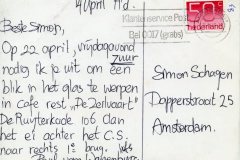 4 April
Beste Simon,
Op 22 april, vrijdagavond
zuur
nodig ik je uit om een
blik in het glas te werpen
in Cafe rest. "De Zeilvaart"
De Ruyterkade 106 dan
het ei achter het C.S.
naar 1e brug.
Klantenservice Post
Bel 0017 (gratis)
50c
nederland
Simon Schagen
Dapperstraat 25
Amsterdam.